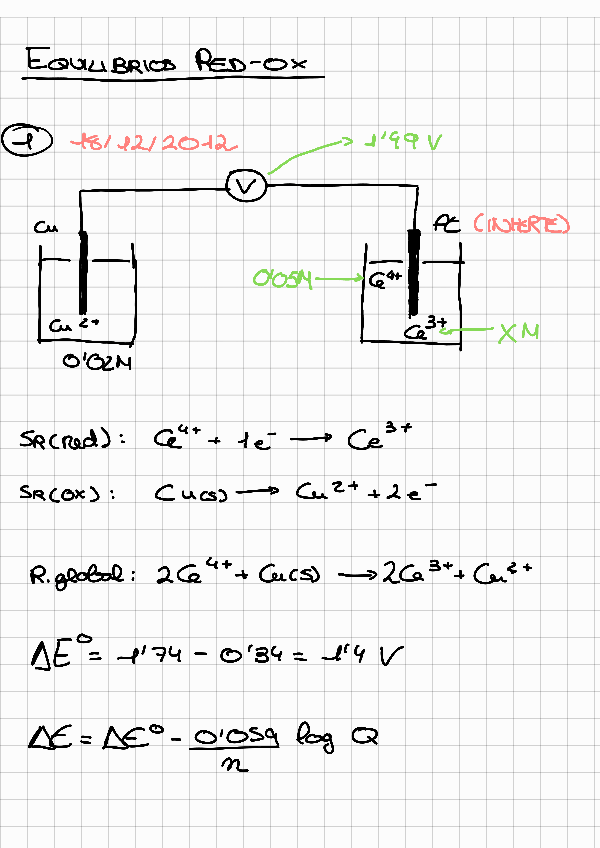 EQUILIBRIOS RED-OX
1 18/12/2012 1'99 V
V
Cu Pt (INHERTE)
0'05M Ce⁴⁺
Cu²⁺ Ce³⁺ X M
0'02M
SR(red): Ce⁴⁺ + 1e⁻ → Ce³⁺
SR(ox): Cu(s) → Cu²⁺ + 2e⁻
R.global: 2Ce⁴⁺ + Cu(s) → 2Ce³⁺ + Cu²⁺
ΔE⁰ = 1'74 - 0'34 = 1'4 V
ΔE = ΔE⁰ - 0'059/n log Q